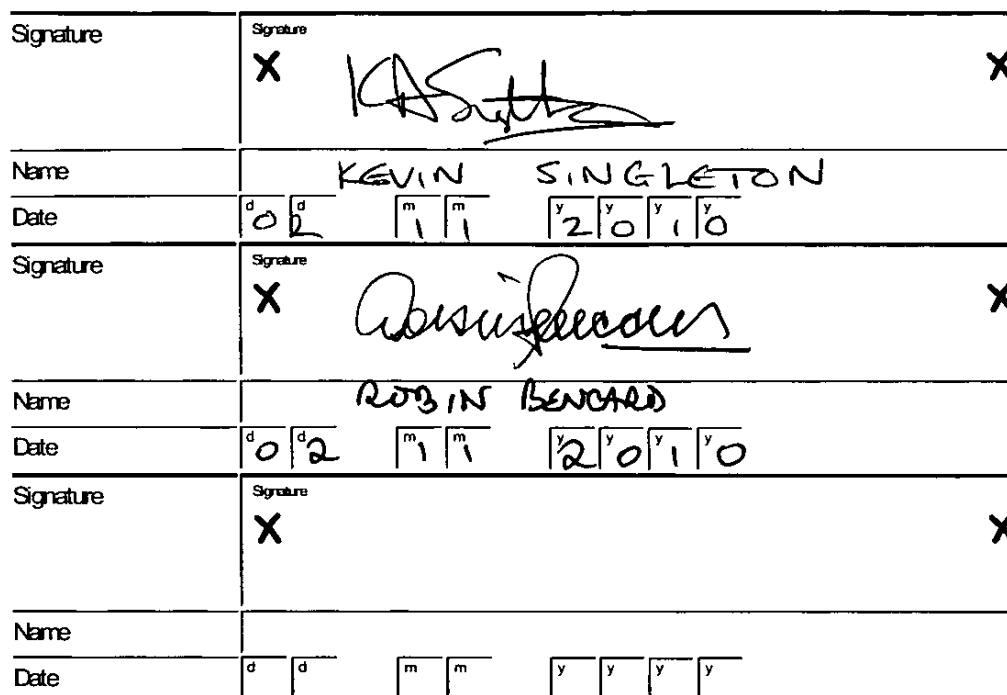 Signature Signature
X X
Name KEVIN SINGLETON
Date d 0 d 2 m 1 m 1 y 2 y 0 y 1 y 0
Signature Signature
X X
Name ROBIN BENCARD
Date d 0 d 2 m 1 m 1 y 2 y 0 y 1 y 0
Signature Signature
X X
Name
Date d d m m y y y y